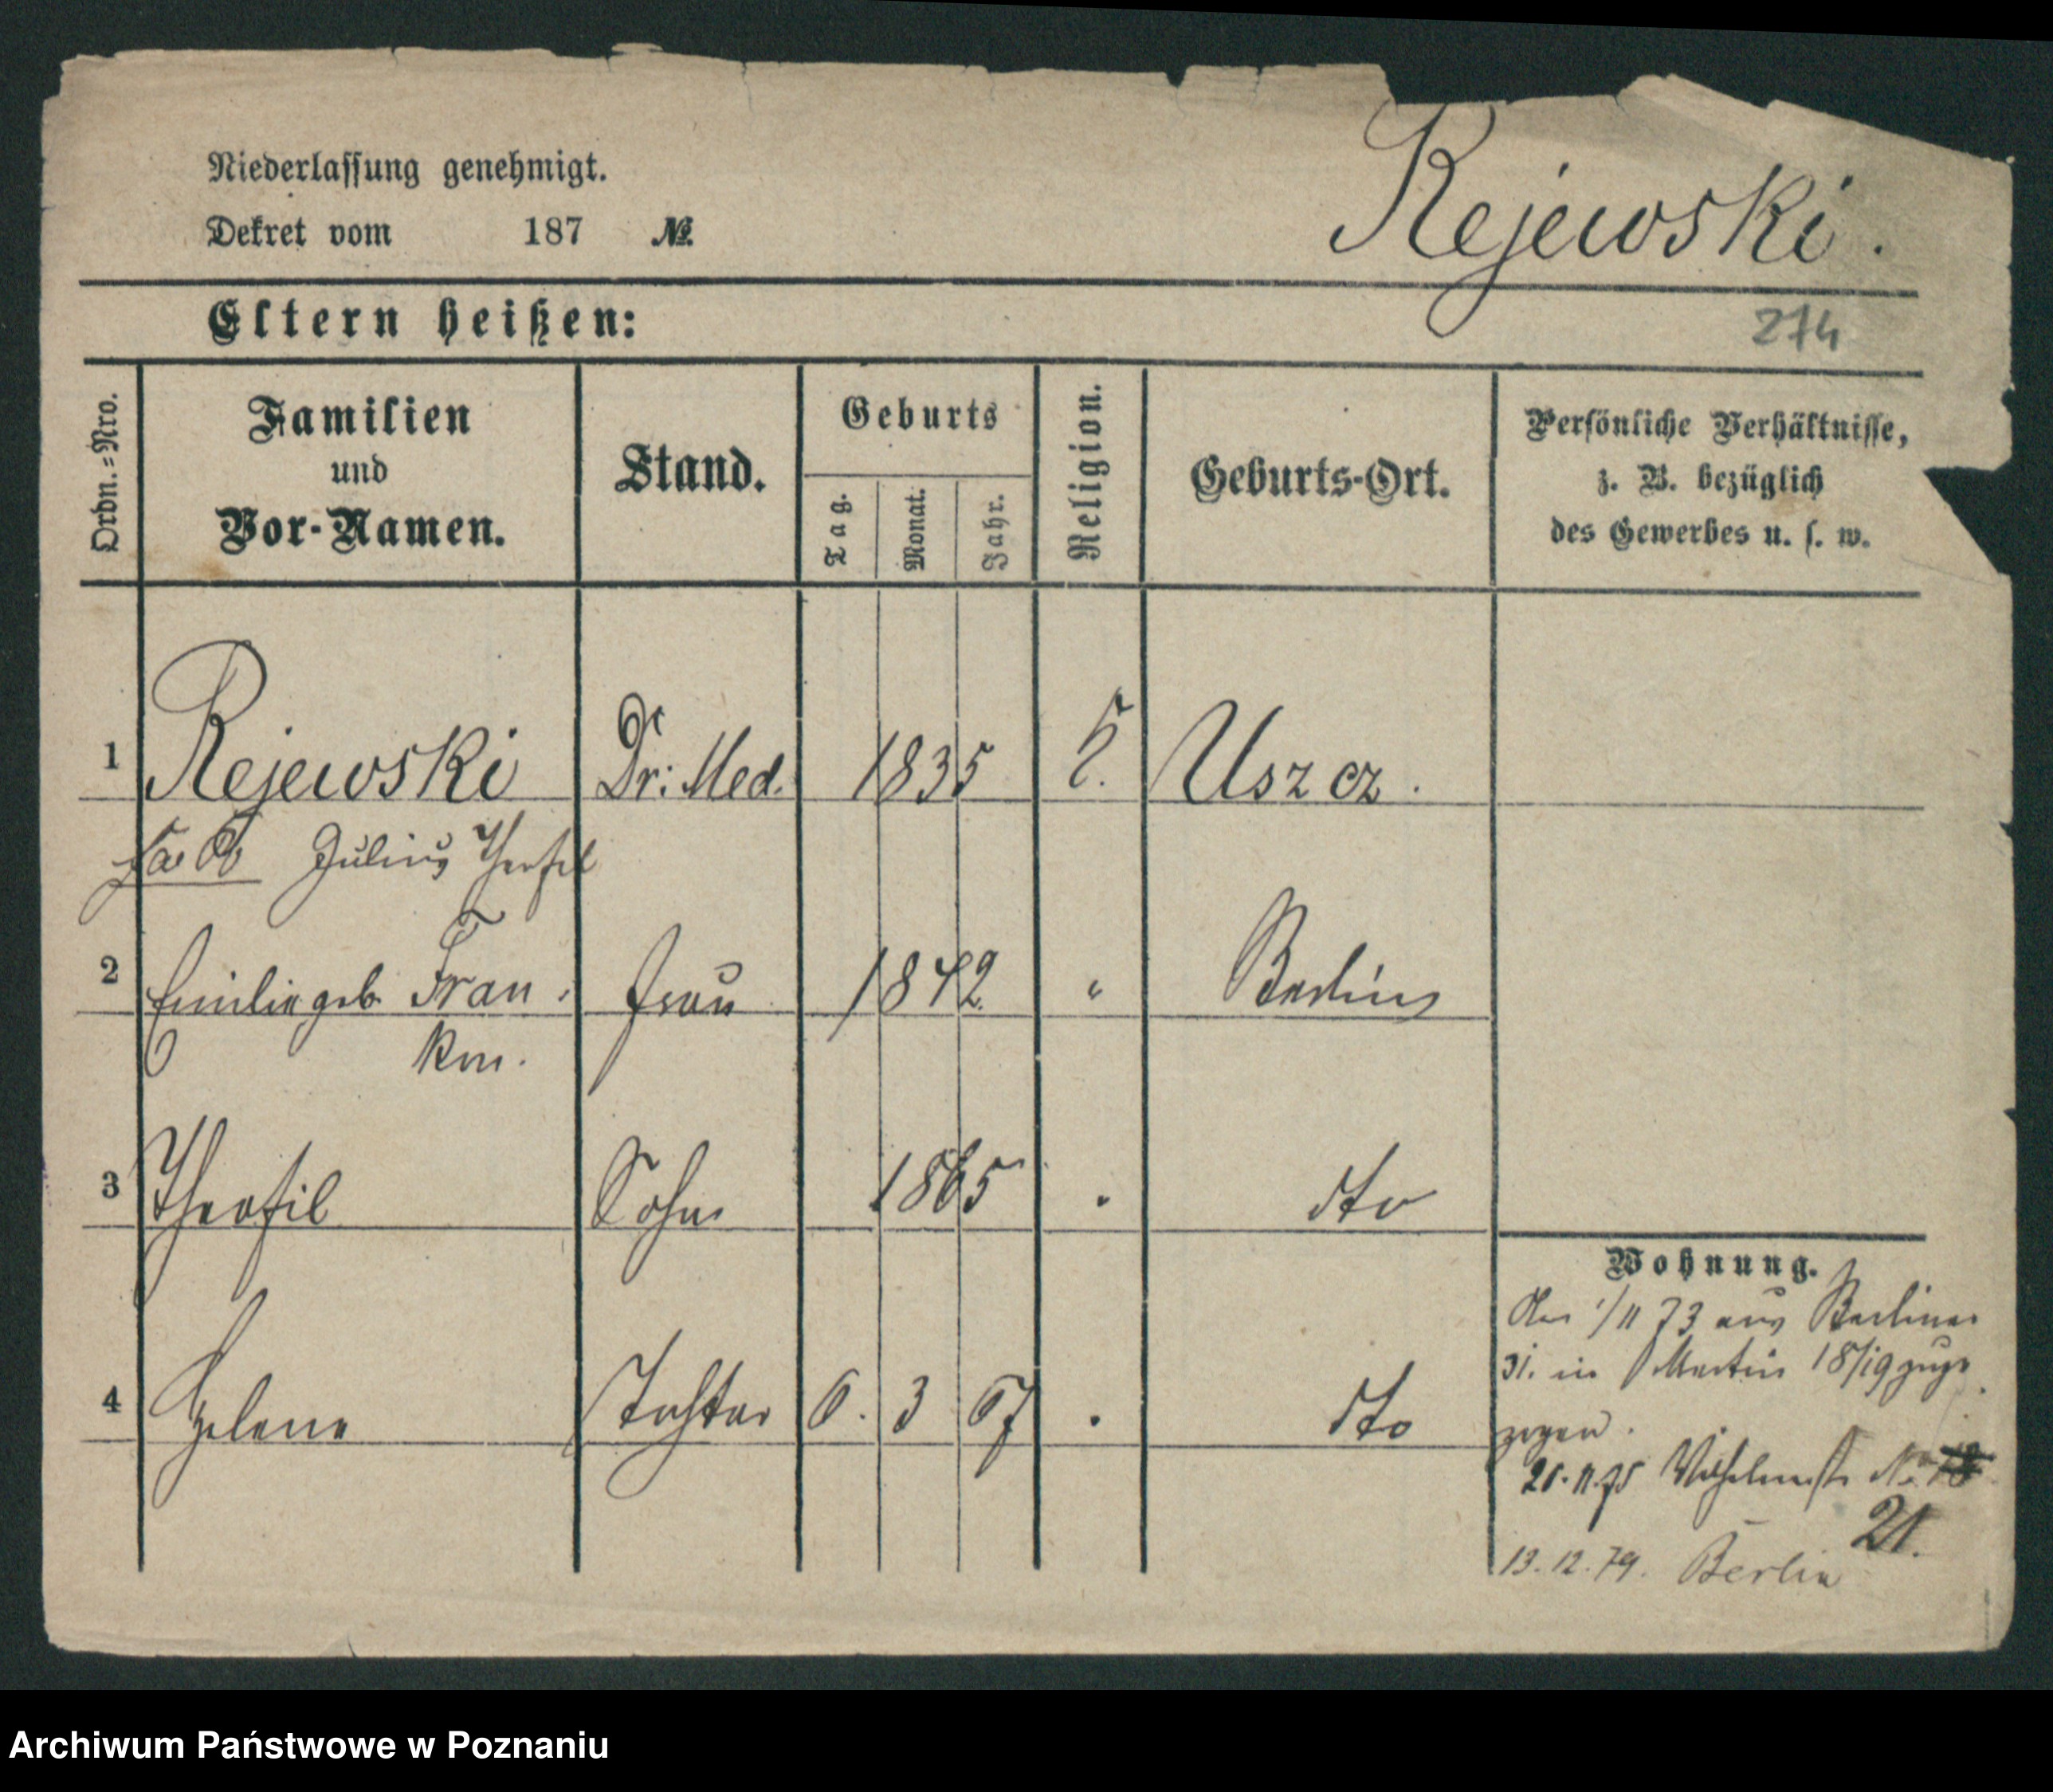 Niederlassung genehmigt.
Dekret vom 187 №
Rejewski.
Eltern heißen:
274
Ordn.-Nro.
Familien und Vor-Namen.
Stand.
Geburts
Tag.
Monat.
Jahr.
Religion.
Geburts-Ort.
Persönliche Verhältnisse,
z. B. bezüglich
des Gewerbes u. s. w.
1 Rejewski Dr: Med. 1835 K. Uszcz.
Julius
2 Emilie geb. Fran- Frau 1842 " Berlin
ken.
3 Theofil Sohn 1865 " dto
4 Helene Tochter 6. 3 67 " dto
Wohnung.
1/11 73 aus Berlin
in Martin 18/19 zuge
zogen.
21.11.75 Wilhelmstr No
21.
13.12.79. Berlin
Archiwum Państwowe w Poznaniu